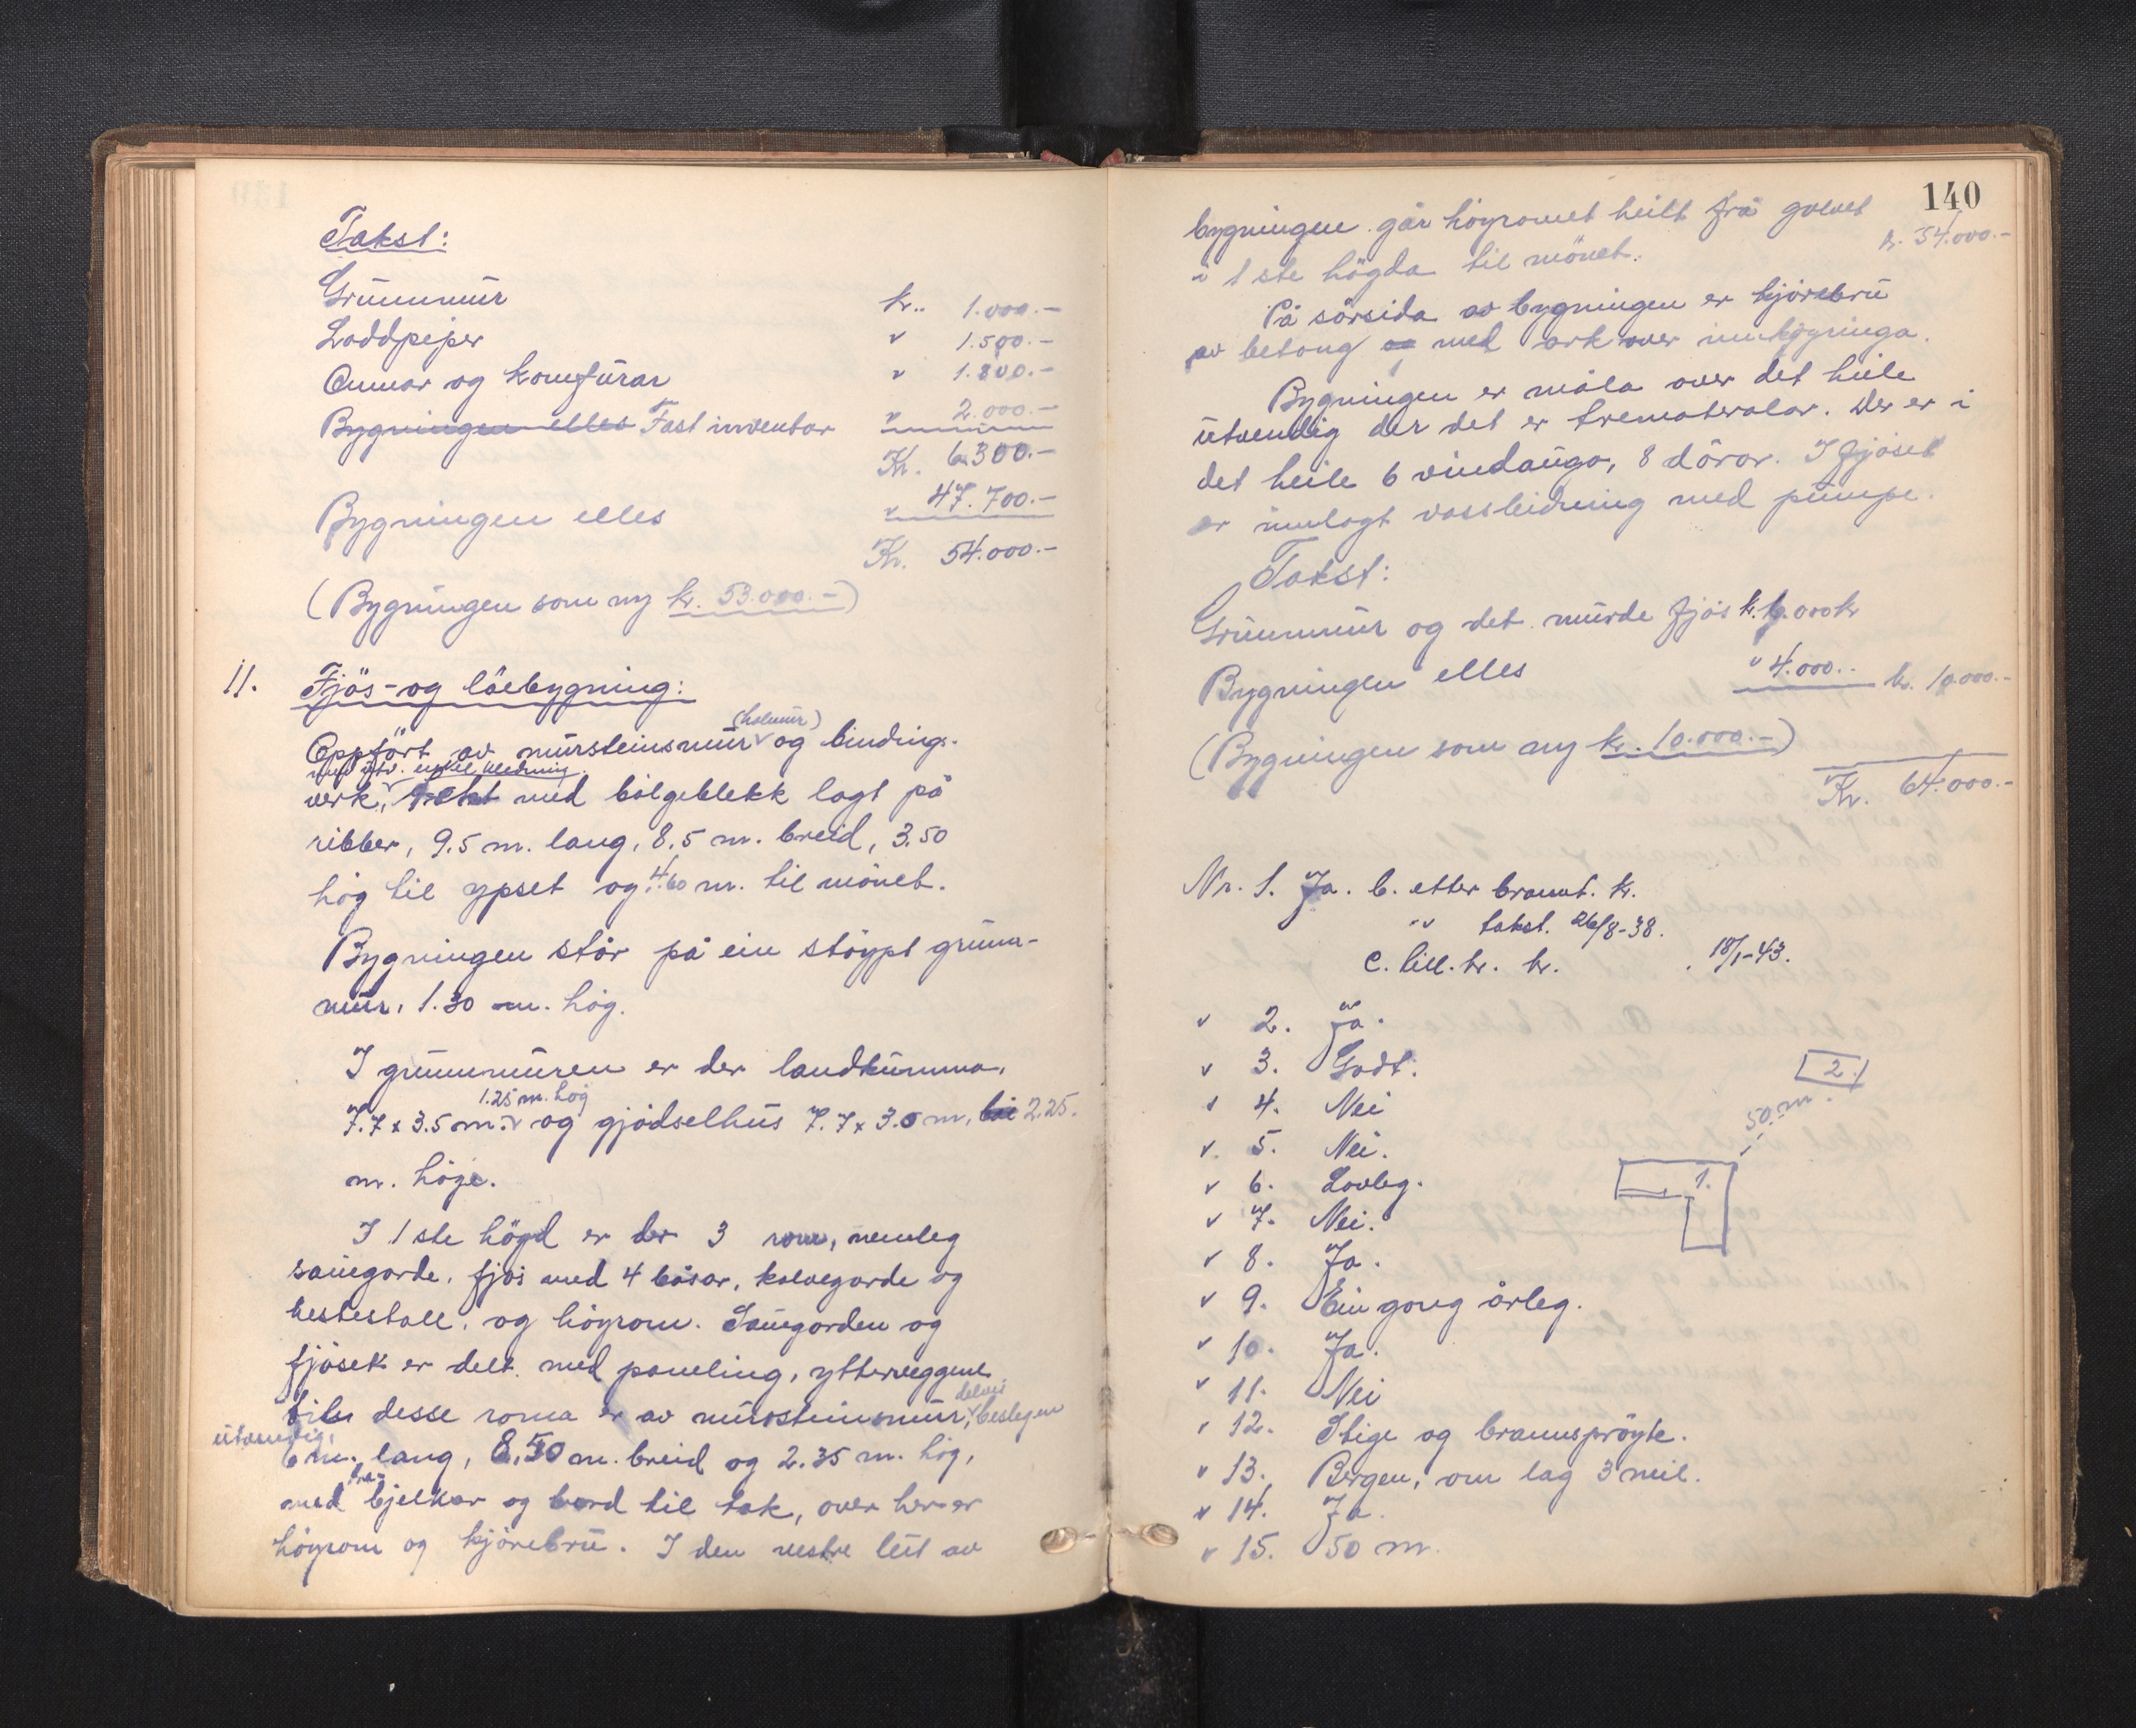 Takst:
Grunnmur kr. 1.000.-
Loddpiper " 1.500.-
Omnar og komfürar " 1.800.-
Bygningen elles Fast inventar " 2.000.-
Kr. 6.300.-
Bygningen elles " 47.700.-
Kr. 54.000.-
(Bygningen som ny kr. 53.000.-)
11. Fjös- og löebygning:
(holmur)
Oppfört av mursteinsmur og bindings-
med utv. enkel kledning.
verk, tekt med bölgeblekk lagt på
ribber, 9.5 m. lang, 8.5 m. breid, 3.50
hög til ypset og 4.60 m. til mönet.
Bygningen står på ein stöypt grunn-
mur, 1.30 m. hög.
I grunnmuren er der landkumma,
1.25 m. hög
7.7 x 3.5 m. og gjödselhus 7.7 x 3.0 m, 2.25.
m. höge.
I 1 ste högd er der 3 rom, nemleg
sauegarde, fjös med 4 båsar, kalvegarde og
hestestall, og höyrom. Sauegarden og
fjöset er delt med paneling, ytterveggene
delvis
til desse roma er av mursteinsmur, beslegen
utvendig,
6 m. lang, 8.50 m. breid og 2.35 m. hög,
tre-
med bjelkar og bord til tak, over her er
höyrom og kjörebru. I den vestre leit av
140
bygningen går höyromet heilt frå golvet
kr. 54.000.-
i 1 ste högda til mönet.
På sörsida av bygningen er kjörebru
av betong og med ark over innköyringa.
Bygningen er måla over det heile
utvendig der det er tremateralar. Der er i
det heile 6 vindauga, 8 dörar. I fjöset
er innlagt vassleidning med pumpe.
Takst:
Grunnmur og det murde fjös kr. 6.000 kr
Bygningen elles " 4.000.- kr. 10.000.-
(Bygningen som ny kr. 10.000.-)
Kr. 64.000.-
Nr. 1. Ja. b. etter brannt. kr.
" takst. 26/8-38.
c. till. kr. kr. 18/1-43.
" 2. Ja.
" 3. Godt.
" 4. Nei
" 5. Nei.
" 6. Lovleg.
" 7. Nei.
" 8. Ja.
" 9. Ein gong årleg.
" 10. Ja.
" 11. Nei
" 12. Stige og brannspröyte.
" 13. Bergen, om lag 3 mil.
" 14. Ja.
" 15. 50 m.
2.
50 m.
1.